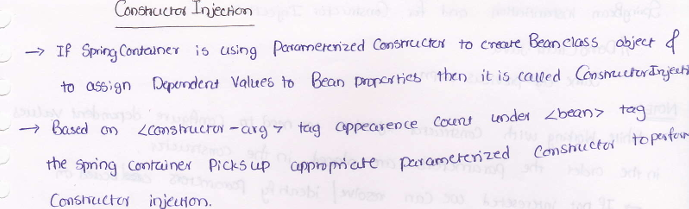 Constructor Injection
→ If Spring Container is using Parameterized Constructor to create Bean class object &
to assign Dependent Values to Bean properties then it is called Constructor Injecti
→ Based on <constructor-arg> tag appearence count under <bean> tag
the spring container Picks up appropriate parameterized Constructor to perform
Constructor injection.